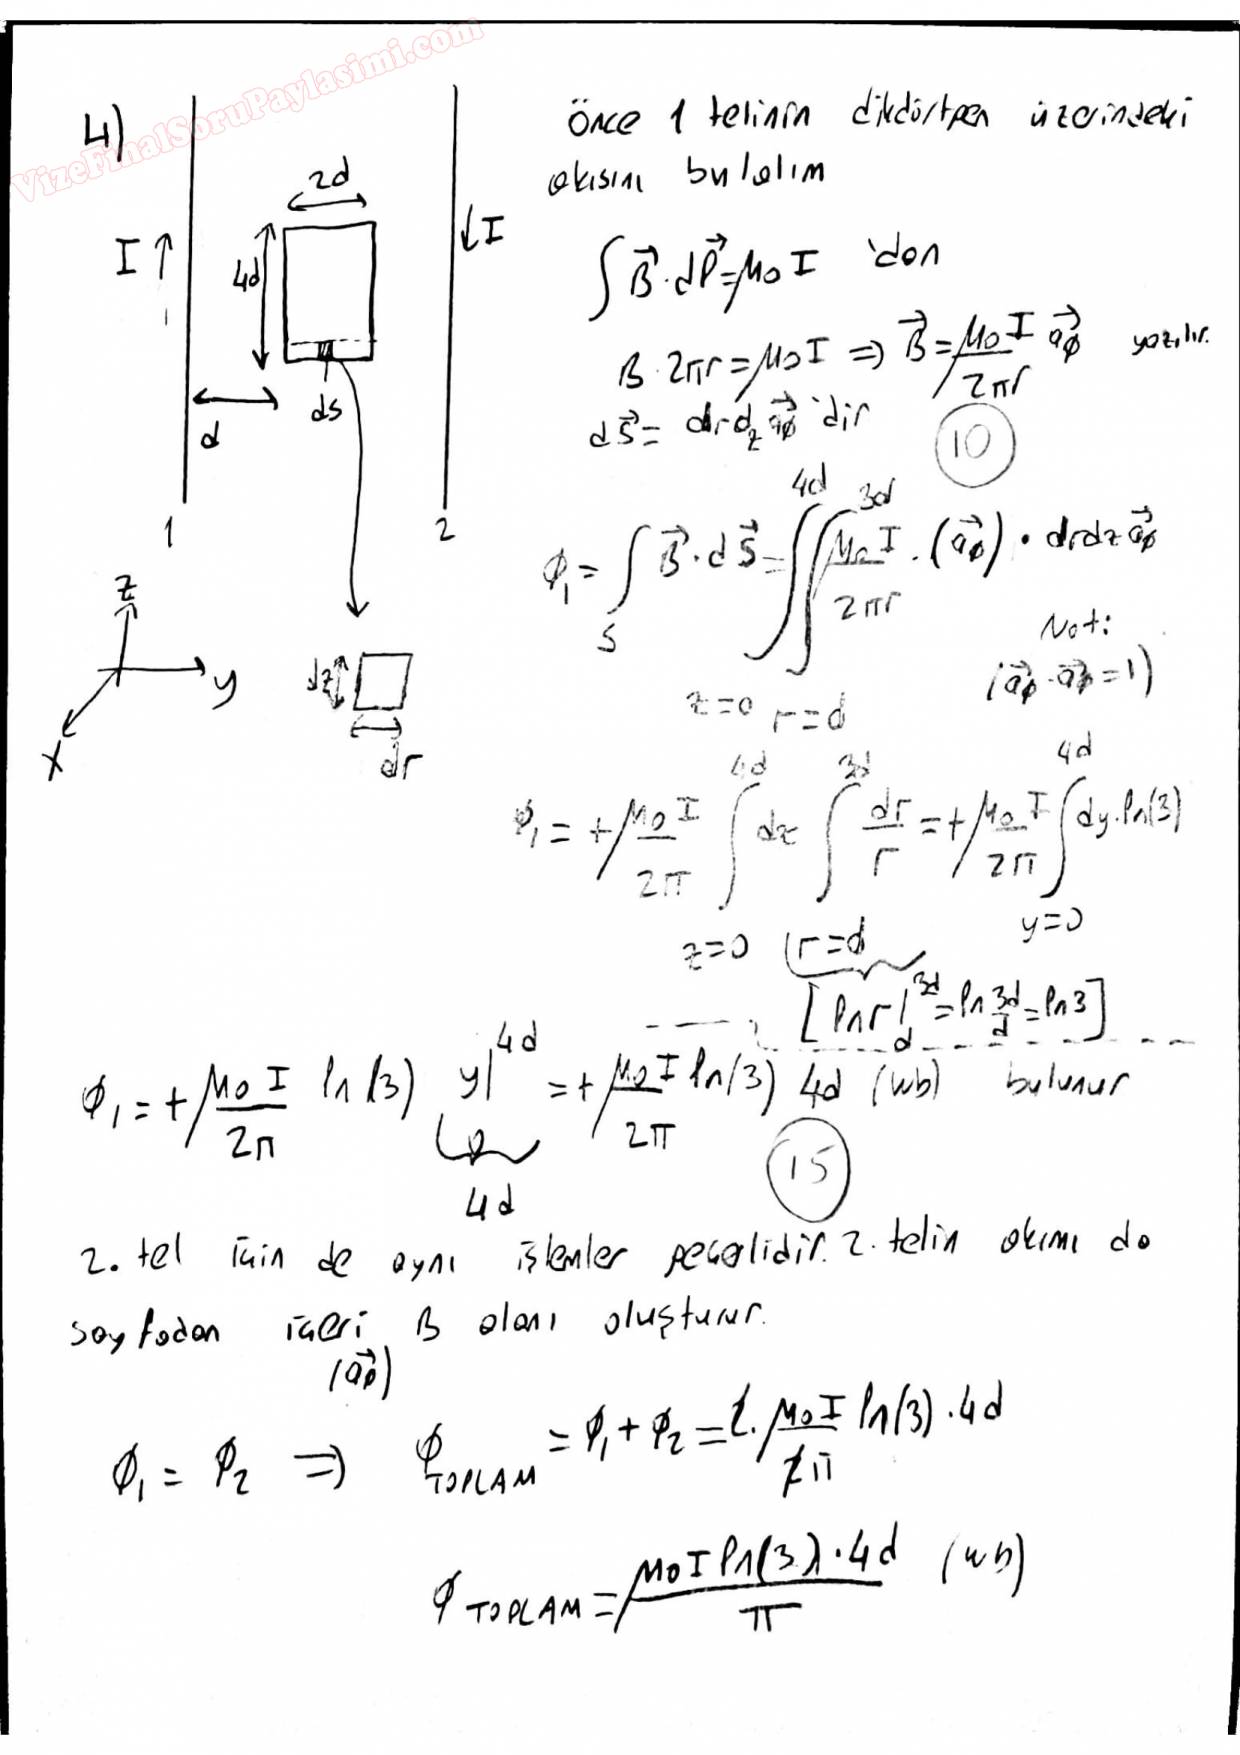 VizeFinalSoruPaylasimi.com
4)
Önce 1 telinin dikdörtgen üzerindeki
akısını bulalım
2d
I
4d
I
ds
d
1
2
∫ B⃗ · dl⃗ = μ₀ I 'dan
B · 2πr = μ₀ I ⇒ B⃗ = μ₀ I / 2πr a⃗φ yazılır.
dS⃗ = dr dz a⃗φ 'dir
10
z
y
x
dz
dr
ϕ₁ = ∫_S B⃗ · dS⃗ = ∫_{z=0}^{4d} ∫_{r=d}^{3d} μ₀ I / 2πr · (a⃗φ) · dr dz a⃗φ
Not:
(a⃗φ · a⃗φ = 1)
ϕ₁ = + μ₀ I / 2π ∫_{z=0}^{4d} dz ∫_{r=d}^{3d} dr / r = + μ₀ I / 2π ∫_{y=0}^{4d} dy · ln(3)
[ ln r |_d^{3d} = ln 3d/d = ln 3 ]
ϕ₁ = + μ₀ I / 2π ln(3) y|^{4d} = + μ₀ I / 2π ln(3) 4d (wb) bulunur
4d
15
2. tel için de aynı işlemler geçerlidir. 2. telin akımı da
sayfadan içeri B alanı oluşturur.
(a⃗φ)
ϕ₁ = ϕ₂ ⇒ ϕ_TOPLAM = ϕ₁ + ϕ₂ = 2 · μ₀ I / 2π ln(3) · 4d
ϕ_TOPLAM = μ₀ I ln(3) · 4d / π (wb)